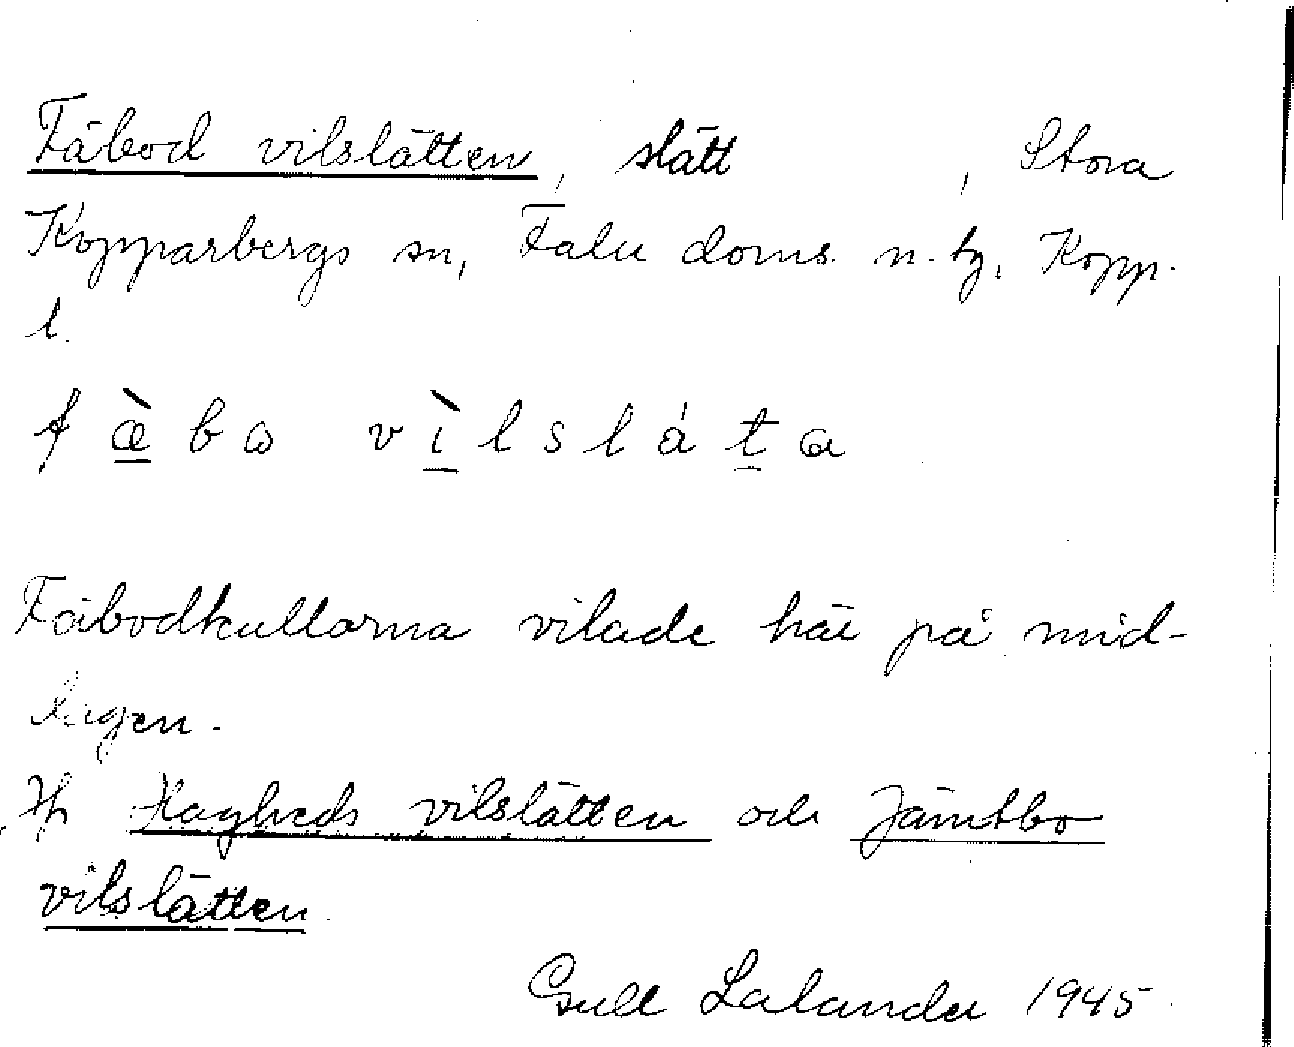 Fäbod vilslätten, slätt , Stora
Kopparbergs sn, Falu doms. n. tg, Kopp.
l.
f æ̀ b ɷ v ì l s l á t a
Fäbodkullorna vilade här på mid-
dagen.
Jfr Hagheds vilslätten och Jämtbo
vilslätten.
Gull Lalander 1945.